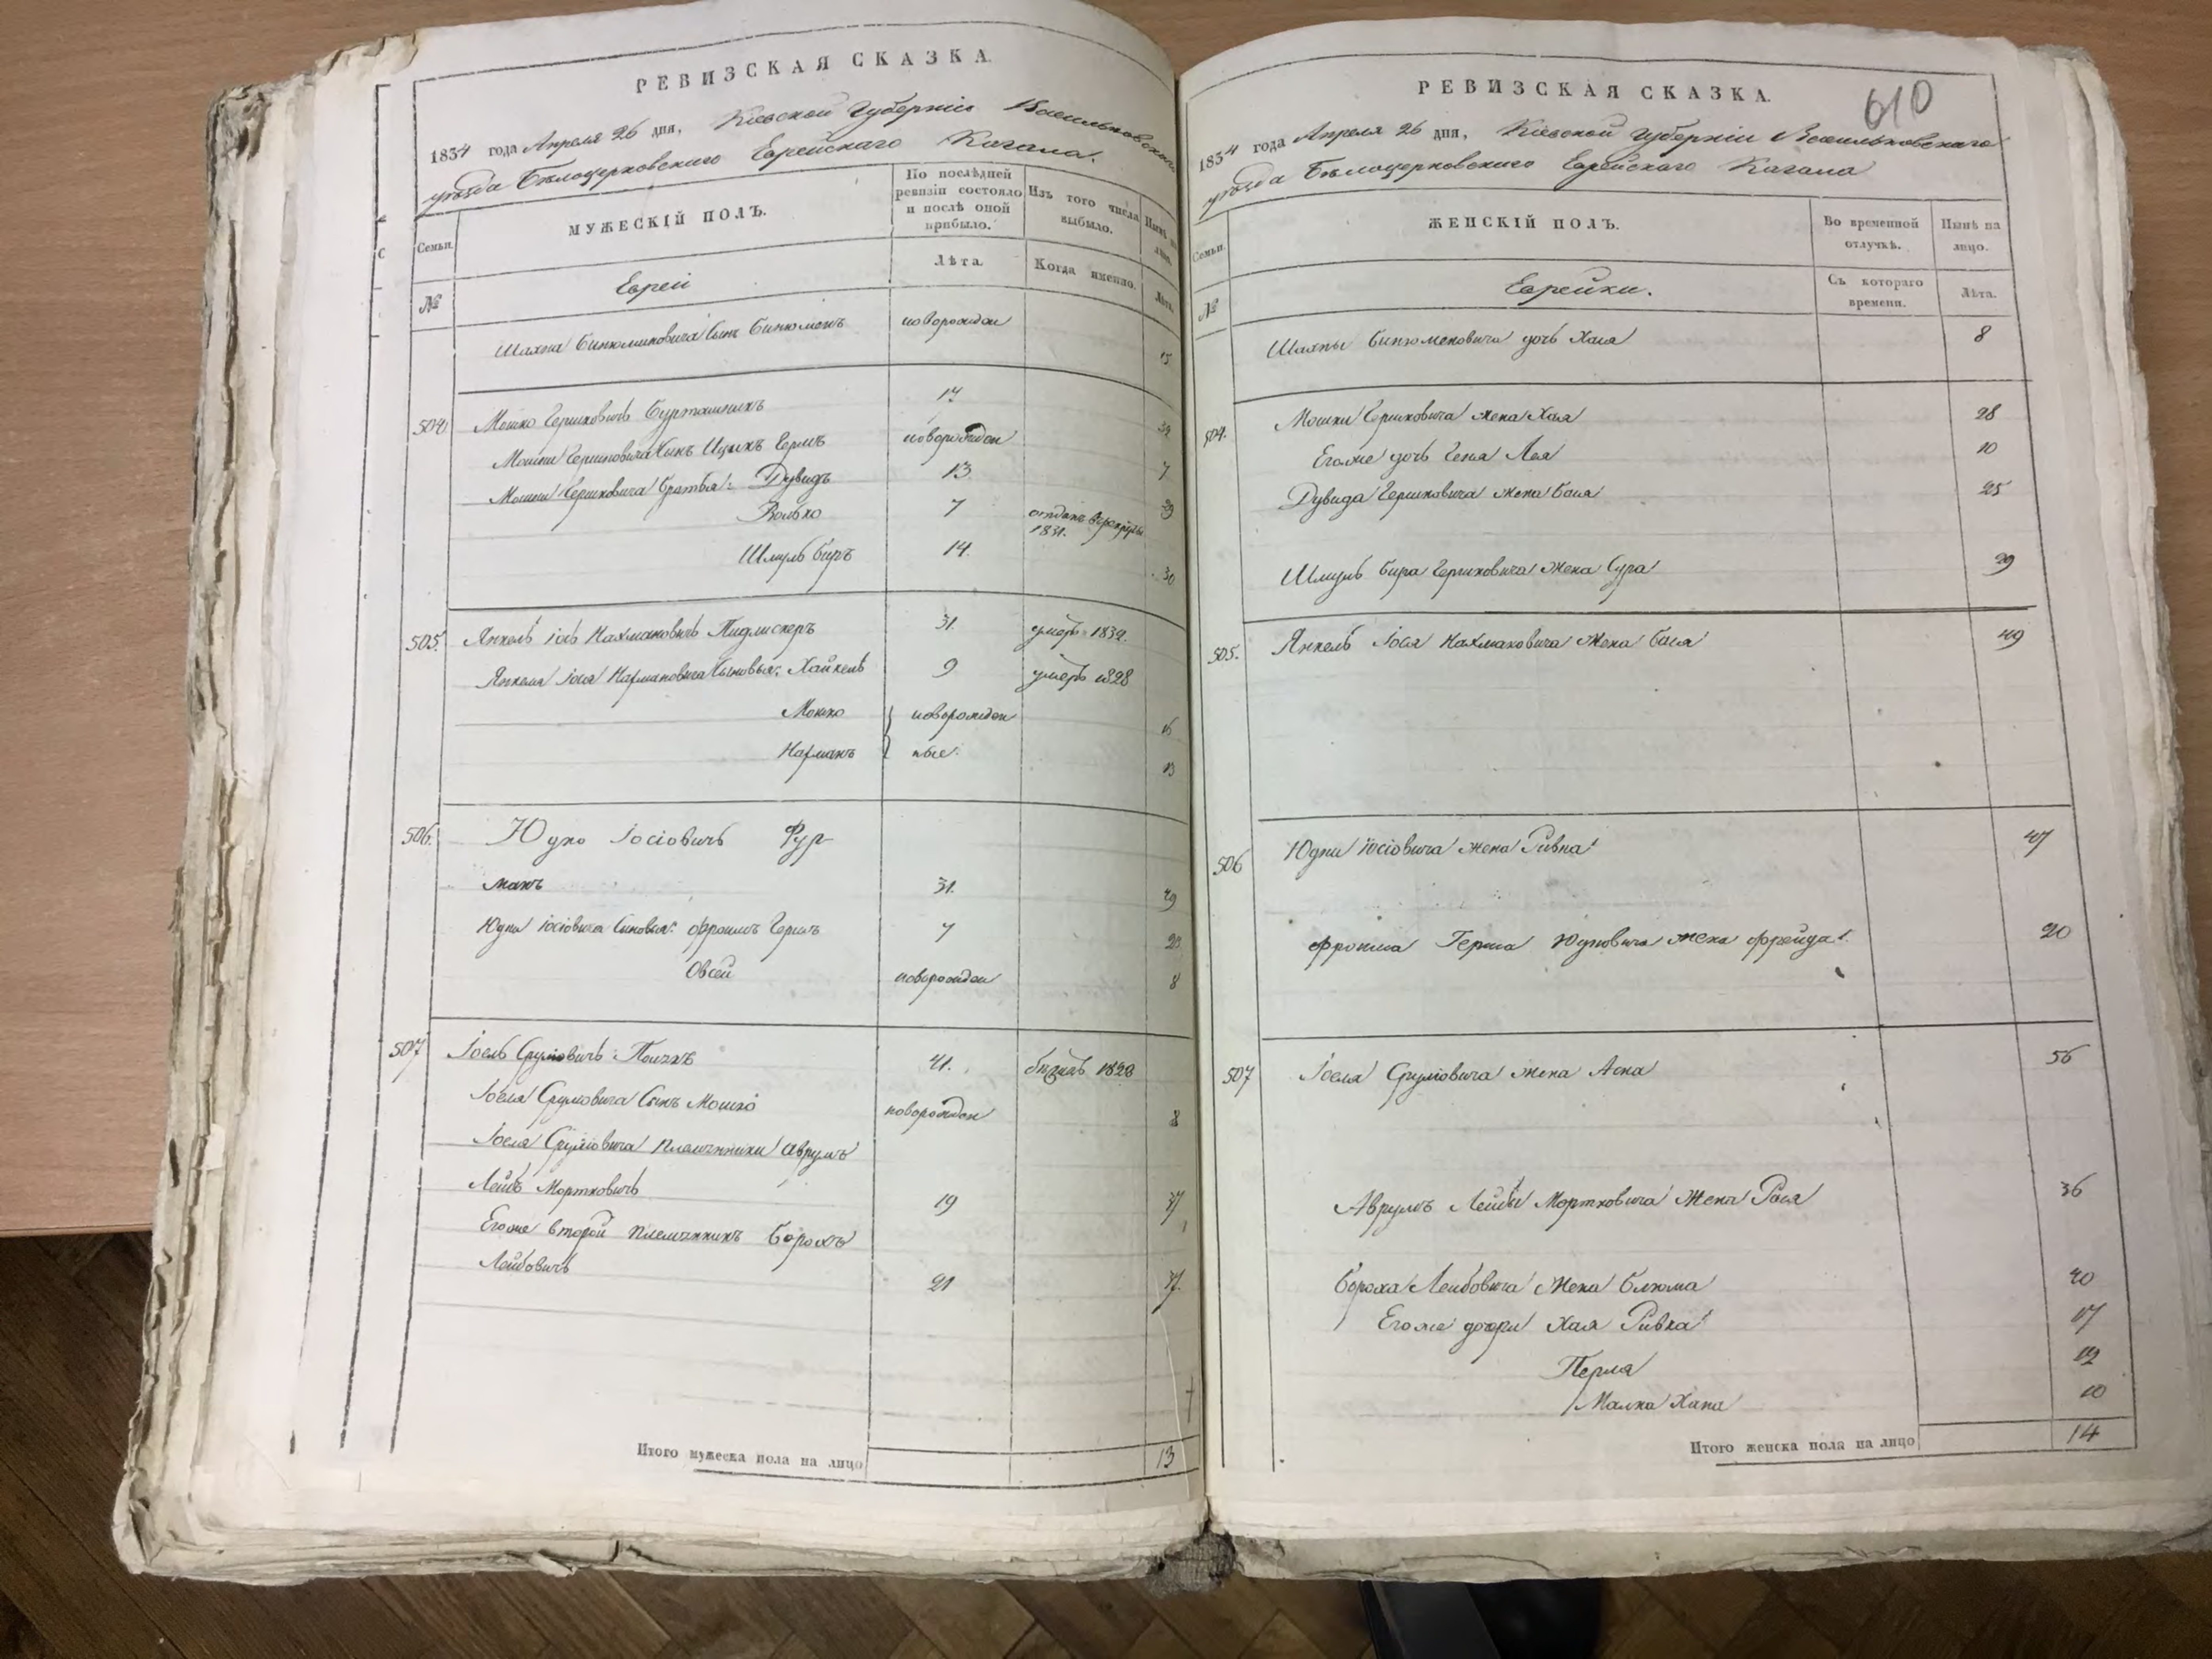 РЕВИЗСКАЯ СКАЗКА.
1834 года Апреля 26 дня, Кіевской Губерніи Васильковскаго
уѣзда Бѣлоцерковскаго Еврейскаго Кагала.
Семьи.
МУЖЕСКІЙ ПОЛЪ.
По послѣдней ревизіи состояло и послѣ оной прибыло.
Изъ того числа выбыло.
Нынѣ на лицо.
№
Евреи
Лѣта.
Когда именно.
Лѣта.
Шахна Бинюминовича Сынъ Бинюменъ новорожден 15
504. Мошко Гершковичъ 17 34
Мошки Гершковича Сынъ Ицыкъ Гершъ новорожден 7
Мошки Гершковича братья: Дувидъ 13 29
Волько 7 отданъ в рекруты 1831.
Шмуль Биръ 14. 30
505. Янкель Іось Нахмановичъ 31. умеръ 1832.
Янкеля Іося Нахмановича Сыновья: Хайкель 9 умеръ 1828
Мошко новорожден 16
Нахманъ ные. 13
506. Юдко Іосіовичъ Фур-
манъ 31. 49
Юдки Іосіовича Сыновья: Фроимъ Гершъ 7 23
Овсей новорожден 8
507 Іоель Сруліовичъ 41. бѣжалъ 1828
Іоеля Сруліовича Сынъ Мошко новорожден 8
Іоеля Сруліовича племянники Аврумъ
Лейбъ Мортковичъ 19 37
Егоже второй племянникъ Борохъ
Лейбовичъ 21 37.
Итого мужеска пола на лицо 13
610
РЕВИЗСКАЯ СКАЗКА.
1834 года Апреля 26 дня, Кіевской Губерніи Васильковскаго
уѣзда Бѣлоцерковскаго Еврейскаго Кагала
Семьи.
ЖЕНСКІЙ ПОЛЪ.
Во временной отлучкѣ.
Нынѣ на лицо.
№
Еврейки.
Съ котораго времени.
Лѣта.
Шахны Бинюменовича дочь Хая 8
504. Мошки Гершковича жена Хая 28
Егоже дочь Геня Лея 10
Дувида Гершковича жена Бася 25
Шмуль Бира Гершковича жена Сура 29
505. Янкель Іося Нахмановича жена Бася 49
506 Юдки Іосіовича жена Ривка 47
Фроима Герша Юдковича жена Фрейда 20
507 Іоеля Сруліовича жена Асна 56
Аврумъ Лейбы Мортковича жена Рося 36
Бороха Лейбовича жена Блюма 40
Егоже дочери Хая Ривка 17
Перля 12
Малка Хана 10
Итого женска пола на лицо 14